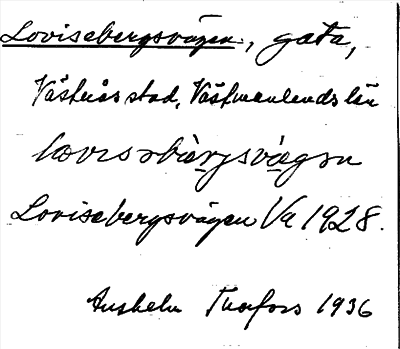 Lovisebergsvägen, gata,
Västerås stad, Västmanlands län
lovisəbàrjsvägən
Lovisebergsvägen Va 1928.
Anshelm Thorfors 1936